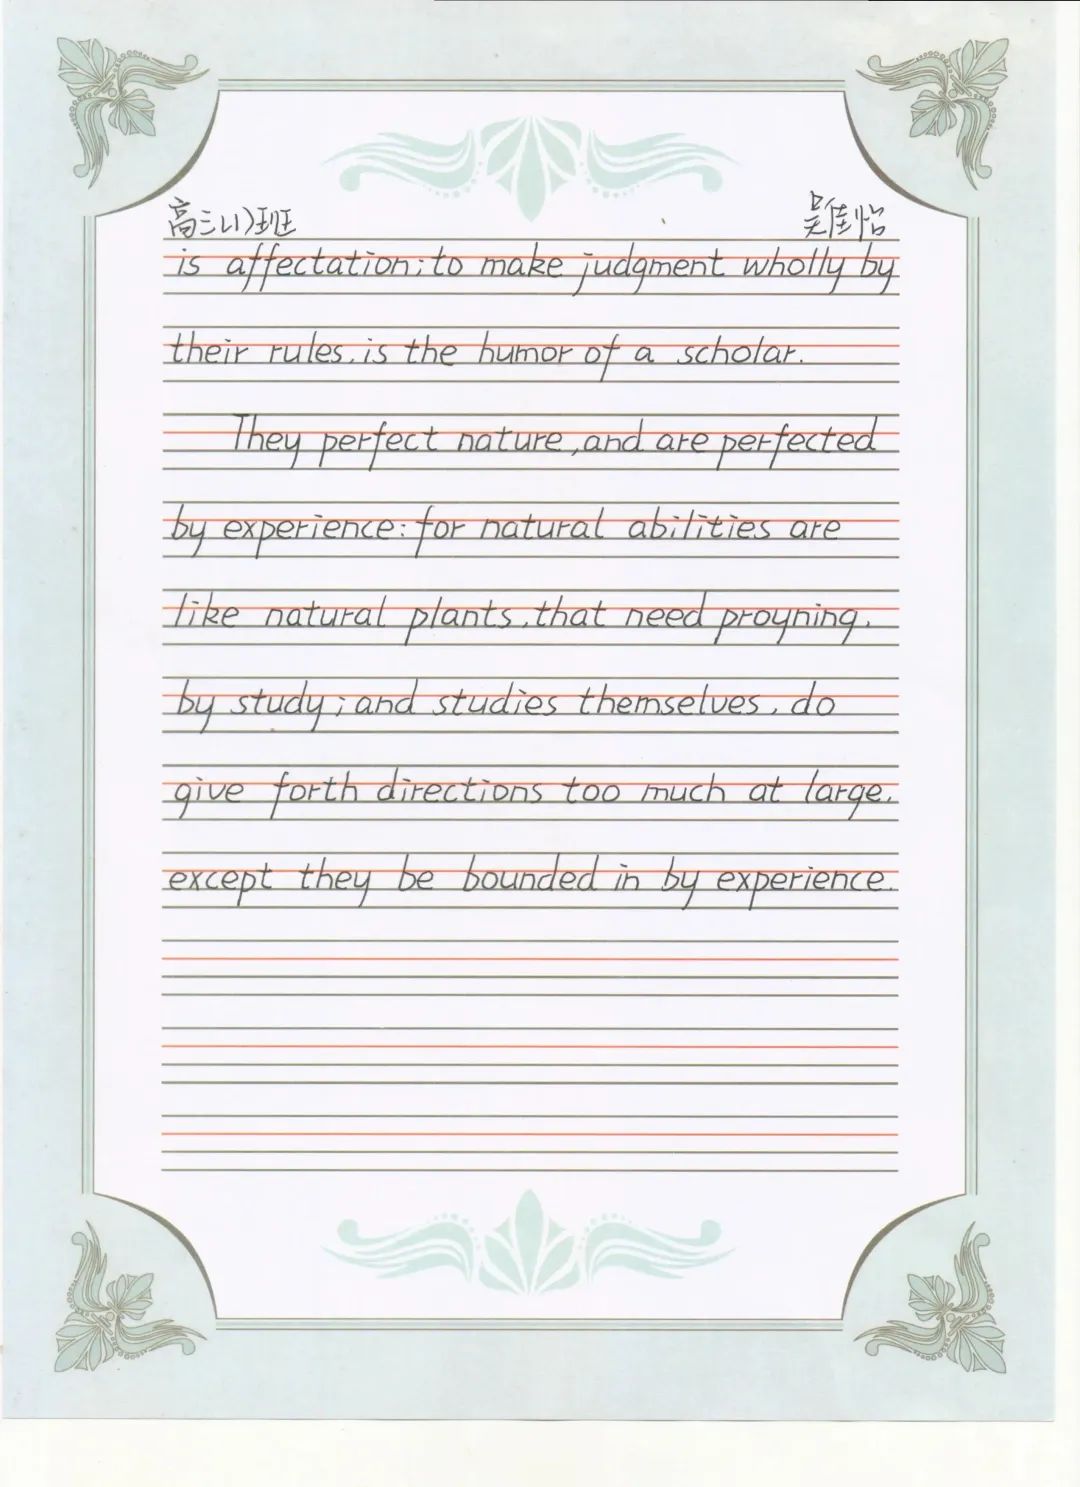 高三(1)班 吴佳怡
is affectation; to make judgment wholly by
their rules, is the humor of a scholar.
They perfect nature, and are perfected
by experience: for natural abilities are
like natural plants, that need proyning,
by study; and studies themselves, do
give forth directions too much at large,
except they be bounded in by experience.